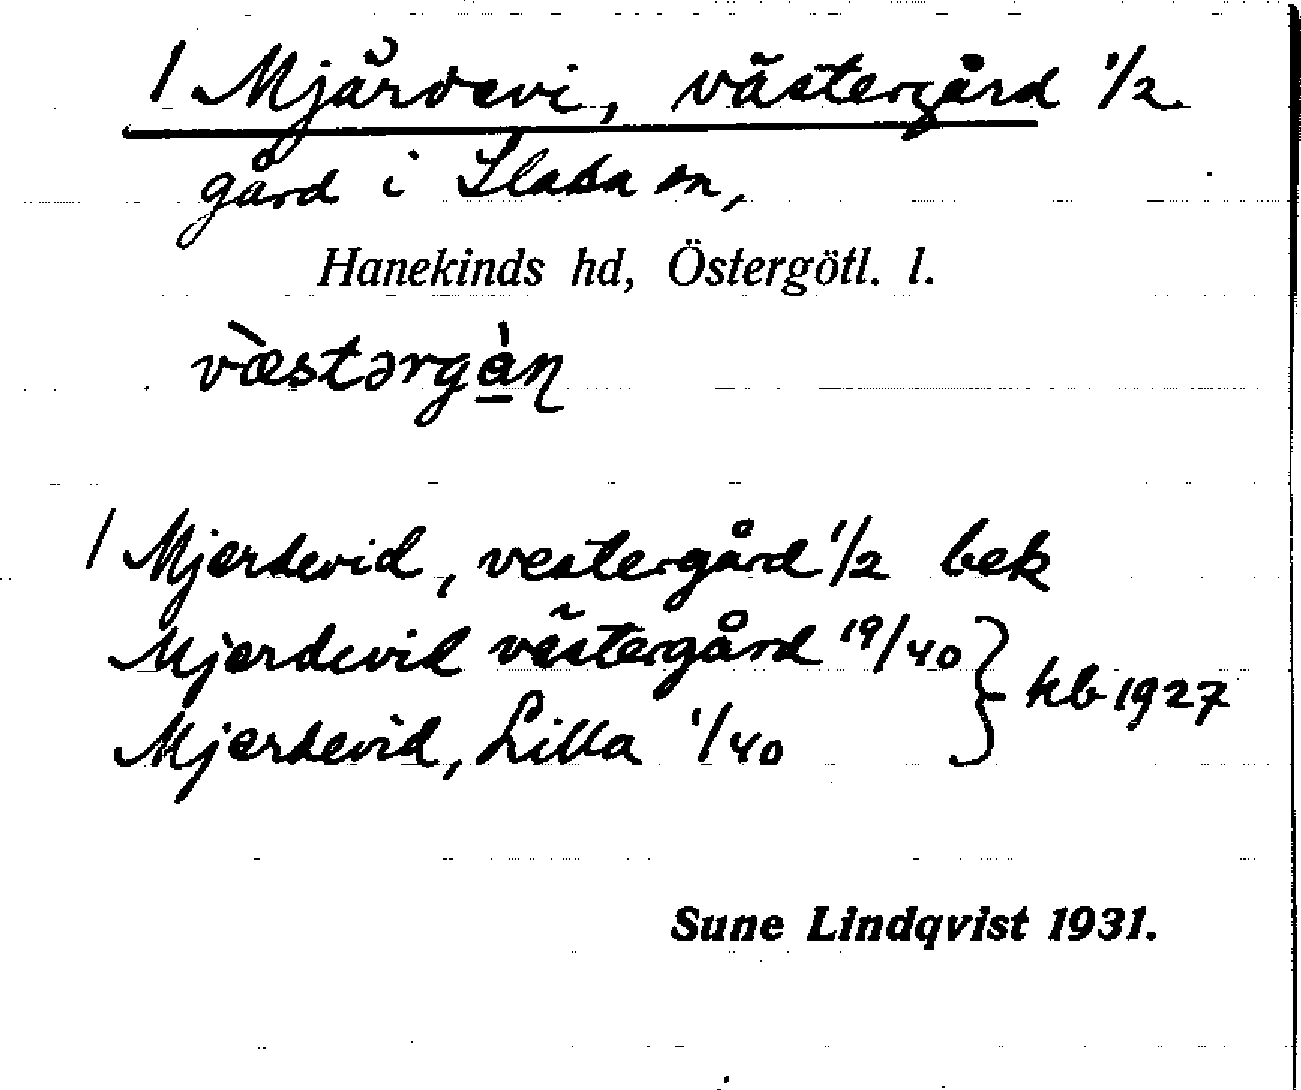 1 Mjärdevi, västergård 1/2
gård i Slaka sn,
Hanekinds hd, Östergötl. l.
v̀æstərgàɳ
1 Mjerdevid, vestergård 1/2 bek
Mjerdevid västergård 19/40
Mjerdevid, Lilla 1/40 } kb 1927
Sune Lindqvist 1931.